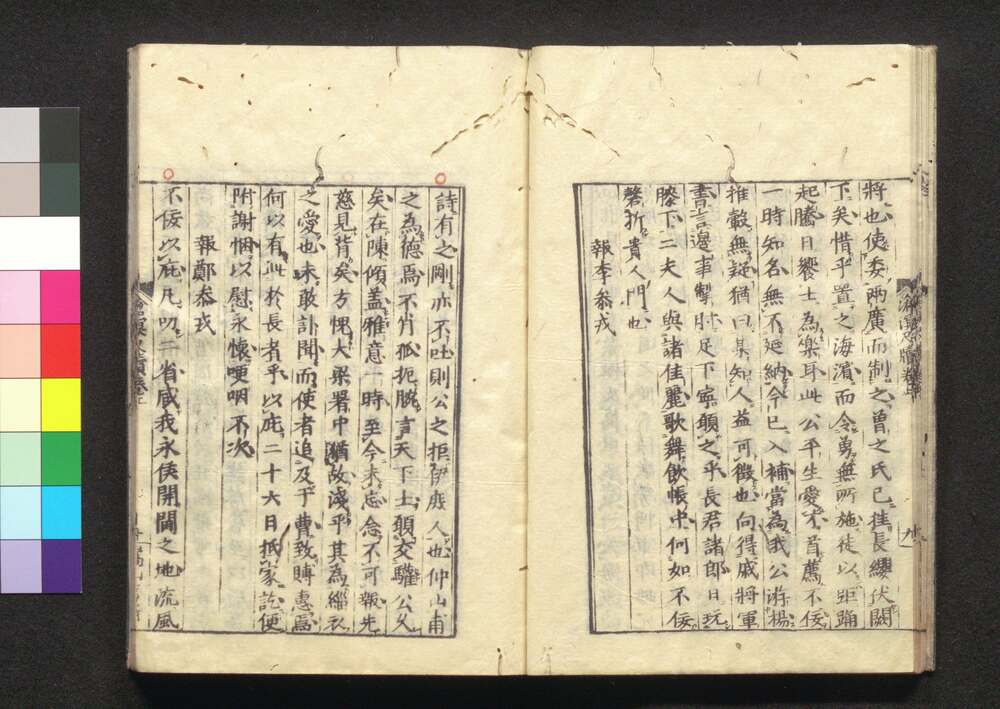 將也使委兩廣而制之曾之氏已挂長纓伏闕
下矣惜乎置之海濵而令勇無所施徒以距踊
起騰日饗士為樂耳此公平生愛才首薦不佞
一時知名無不延納今已入補當為我公游揚
推轂無疑猶曰某知人益可徵也向得戚將軍
書言邊事掣肘足下寧頼之乎長君諸郎日玩
膝下二夫人與諸佳麗歌舞飲帳中何如不佞
磬折貴人門也
報李叅戎
詩有之剛亦不吐則公之拒伊庶人也仲山甫
之為德焉不肖孤扼腕言天下士頼交驩公久
矣在陳傾盖雅意一時至今未忘念不可報先
慈見背矣方愧大梁署中猶故淺乎其為緇衣
之愛也未敢訃聞而使者追及于曹致賻惠焉
何以有此於長者乎以庇二十六日抵家訖便
附謝悃以慰永懷哽咽不次
報鄭叅戎
不佞以庇凡叨二省咸我永侯開閫之地流風